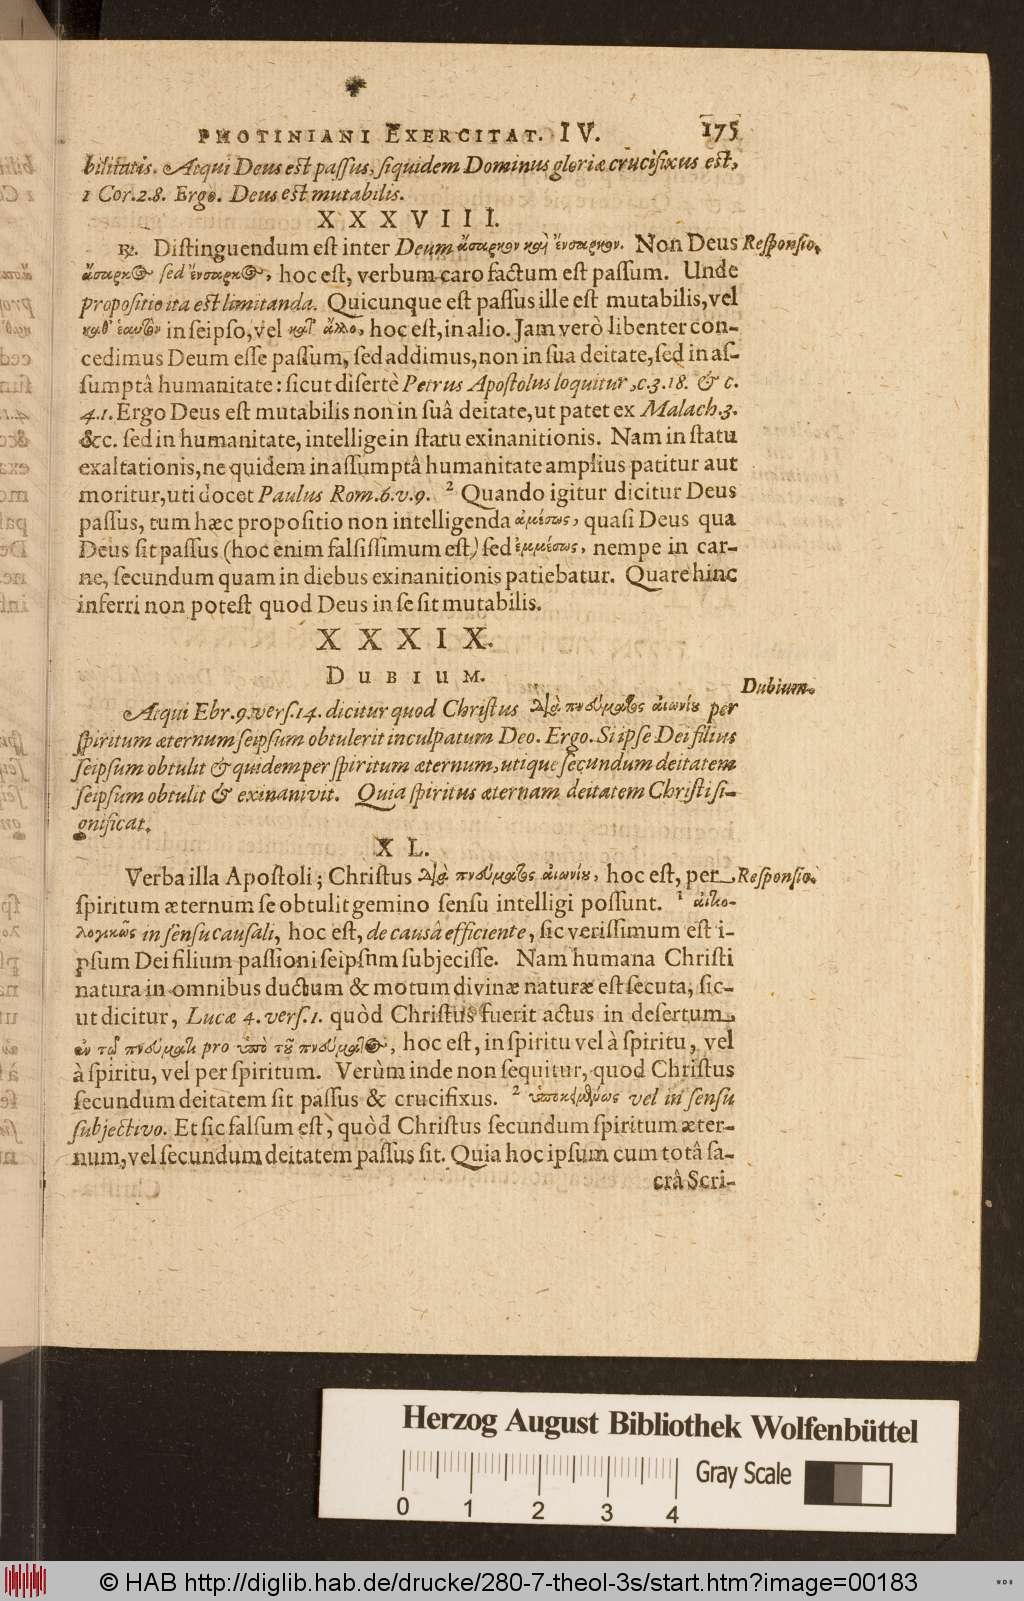 PHOTINIANI EXERCITAT. IV. 175
bilitatis. Atqui Deus est passus, siquidem Dominus gloriæ crucifixus est,
1 Cor. 2. 8. Ergo. Deus est mutabilis.
XXXVIII.
℞. Distinguendum est inter Deum ἄσαρκον καὶ ἔνσαρκον. Non Deus Responsio.
ἄσαρκος sed ἔνσαρκος, hoc est, verbum caro factum est passum. Unde
propositio ita est limitanda. Quicunque est passus ille est mutabilis, vel
καθ' ἑαυτὸν in seipso, vel κατ' ἄλλο, hoc est, in alio. Jam verò libenter con-
cedimus Deum esse passum, sed addimus, non in sua deitate, sed in as-
sumptâ humanitate: sicut disertè Petrus Apostolus loquitur, c. 3. 18. & c.
4. 1. Ergo Deus est mutabilis non in suâ deitate, ut patet ex Malach. 3.
&c. sed in humanitate, intellige in statu exinanitionis. Nam in statu
exaltationis, ne quidem in assumptâ humanitate amplius patitur aut
moritur, uti docet Paulus Rom. 6. v. 9. 2 Quando igitur dicitur Deus
passus, tum hæc propositio non intelligenda ἀμέσως, quasi Deus qua
Deus sit passus (hoc enim falsissimum est) sed ἐμμέσως, nempe in car-
ne, secundum quam in diebus exinanitionis patiebatur. Quare hinc
inferri non potest quod Deus in se sit mutabilis.
XXXIX.
DUBIUM.
Dubium.
Atqui Ebr. 9. vers. 14. dicitur quod Christus διὰ πνεύματος αἰωνίου per
spiritum æternum seipsum obtulerit inculpatum Deo. Ergo. Si ipse Dei filius
seipsum obtulit & quidem per spiritum æternum, utique secundum deitatem
seipsum obtulit & exinanivit. Quia spiritus æternam deitatem Christi si-
gnificat.
XL.
Verba illa Apostoli; Christus διὰ πνεύματος αἰωνίου, hoc est, per Responsio.
spiritum æternum se obtulit gemino sensu intelligi possunt. 1 αἰτιο-
λογικῶς in sensu causali, hoc est, de causâ efficiente, sic verissimum est i-
psum Dei filium passioni seipsum subjecisse. Nam humana Christi
natura in omnibus ductum & motum divinæ naturæ est secuta, sic-
ut dicitur, Lucæ 4. vers. 1. quòd Christus fuerit actus in desertum
ἐν τῷ πνεύματι pro ὑπὸ τοῦ πνεύματος, hoc est, in spiritu vel à spiritu, vel
à spiritu, vel per spiritum. Verùm inde non sequitur, quod Christus
secundum deitatem sit passus & crucifixus. 2 ὑποκειμένως vel in sensu
subjectivo. Et sic falsum est, quòd Christus secundum spiritum æter-
num, vel secundum deitatem passus sit. Quia hoc ipsum cum totâ sa-
crâ Scri-
Herzog August Bibliothek Wolfenbüttel
Gray Scale
0 1 2 3 4
© HAB http://diglib.hab.de/drucke/280-7-theol-3s/start.htm?image=00183